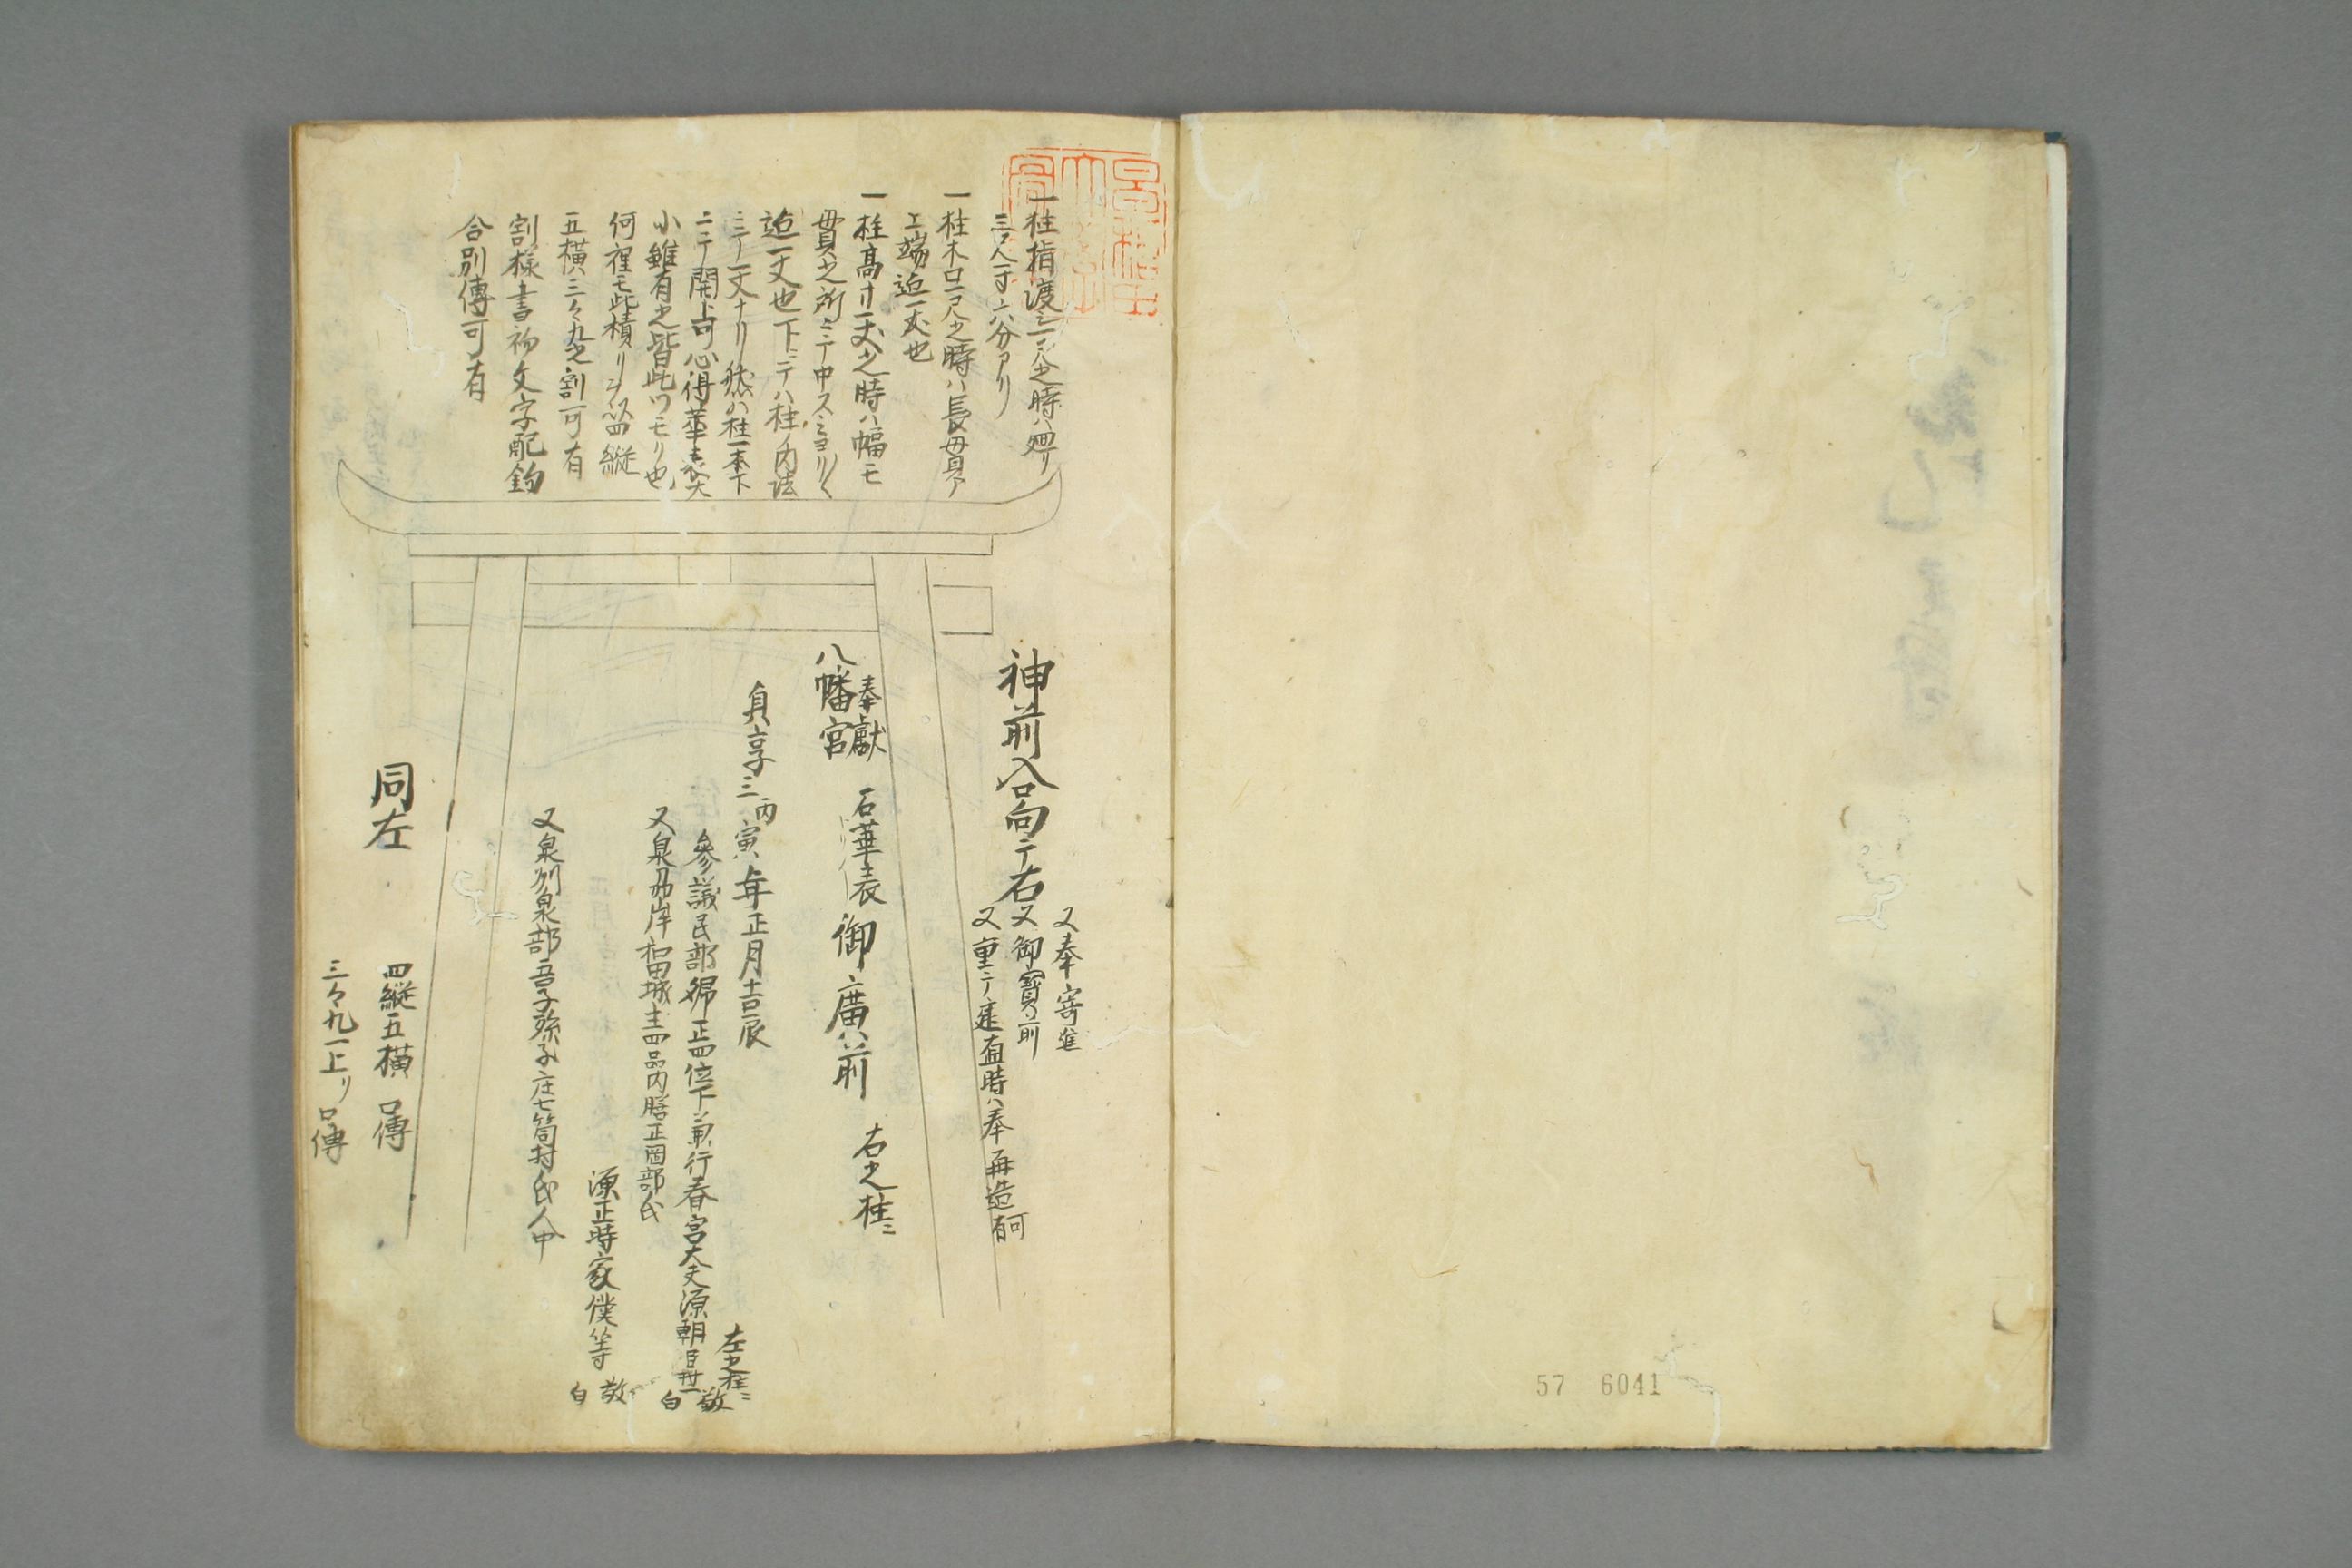 一柱指渡シ一尺之時ハ廻リ
三尺一寸六分アリ
一柱木口一尺之時ハ長毋貫ヨリ
上端迠一丈也
一柱高サ一丈之時ハ幅モ
毋貫之所ニテ中スミヨリ〱
迠一丈也下ニテハ柱ノ内法
ニテ一丈ナリ然ハ柱一本下
ニテ開ト可心得華表大
小雖有之皆此ツモリ也
何程モ此積リヲ以四縦
五横三々九之割可有
割様書物文字配鈎
合別傳可有
神前ヘ向テ右
又奉寄進
又御寳前
又重テ建直時ハ奉再造可有
奉獻
八幡宮
石華表
御廣前
右之柱ニ
貞享三丙寅年正月吉辰
左之柱ニ
參議民部卿正四位下兼行春宮大夫源朝臣 敬白
又泉州岸和田城主四品内膳正岡部氏
源正時家僕等 敬白
又泉刕泉郡 庄七箇村氏人中
同左
四縦五横 口傳
三々九一上リ 口傳
57 6041